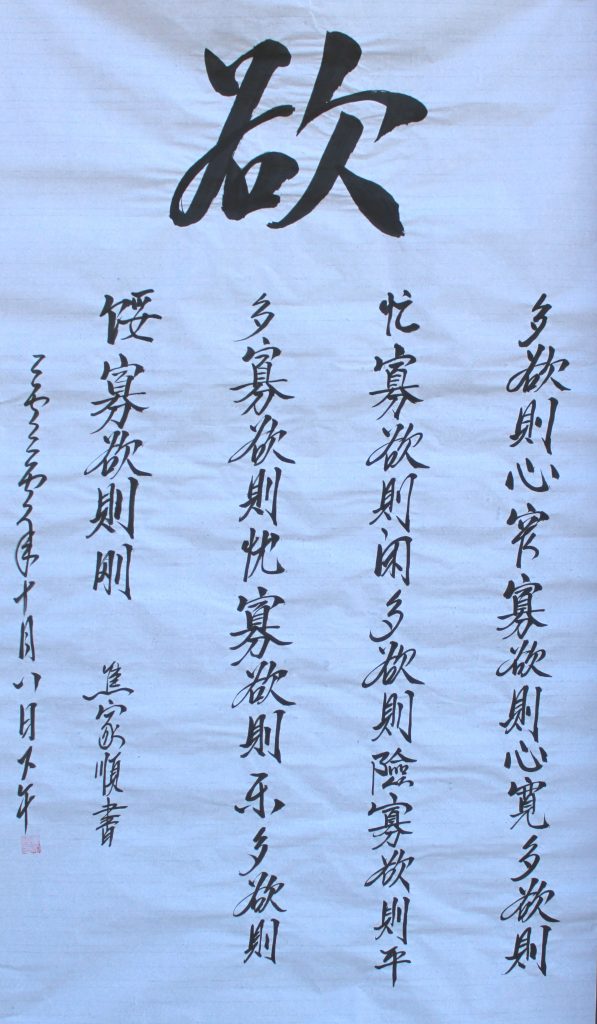 欲
多欲則心窄寡欲則心寬多欲則
忙寡欲則闲多欲則險寡欲則平
多寡欲則忧寡欲則乐多欲則
馁寡欲則刚
焦家順書
年十月八日下午